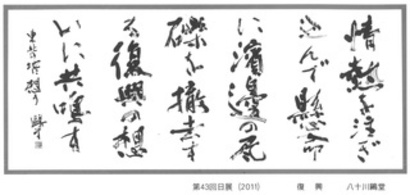 情熱を注ぎ
込んで懸命
に濱邊の瓦
礫を撤去す
る復興の想
いに共鳴す
第43回日展 (2011) 復 興 八十川鷗堂